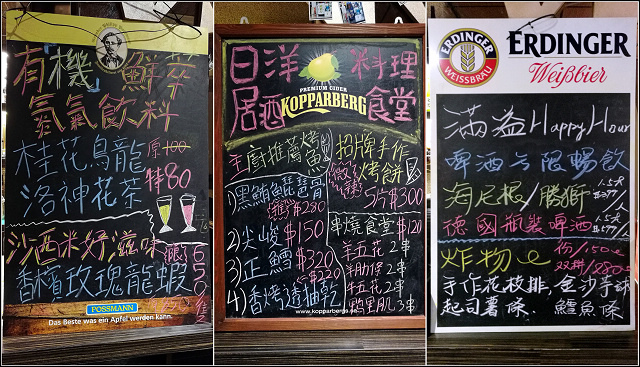 有機 鮮萃
氮氣飲料
桂花烏龍 原100
洛神花茶 特80
沙西米好滋味
香檳玫瑰龍蝦
650
POSSMANN
Das Beste was ein Apfel werden kann.
日洋 料理
居酒 食堂
PREMIUM CIDER
KOPPARBERG
主廚推薦烤魚
1)黑鮪魚琵琶骨
$280
2)尖峻 $150
3)正鱈 $320
$220
4)香烤透油乾
招牌手作
烤餅
5片$300
串燒食堂 $120
羊五花 2串
羊肋條 2串
牛五花 2串
鴨里肌 3串
www.kopparbergs.se
ERDINGER
WEISSBRÄU
ERDINGER
Weißbier
滿益Happy Hour
啤酒无限暢飲
海尼根/勝獅
德國瓶裝啤酒
炸物 份/150元
双拼/280元
手作花枝排.金沙手球
起司薯條.鱈魚條